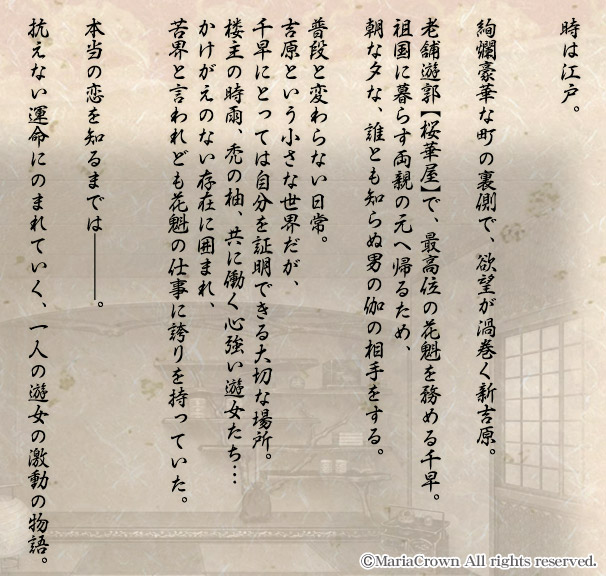 時は江戸。
絢爛豪華な町の裏側で、欲望が渦巻く新吉原。
老舗遊郭【桜華屋】で、最高位の花魁を務める千早。
祖国に暮らす両親の元へ帰るため、
朝な夕な、誰とも知らぬ男の伽の相手をする。
普段と変わらない日常。
吉原という小さな世界だが、
千早にとっては自分を証明できる大切な場所。
楼主の時雨、禿の柚、共に働く心強い遊女たち…
かけがえのない存在に囲まれ、
苦界と言われども花魁の仕事に誇りを持っていた。
本当の恋を知るまでは――。
抗えない運命にのまれていく、一人の遊女の激動の物語。
©MariaCrown All rights reserved.